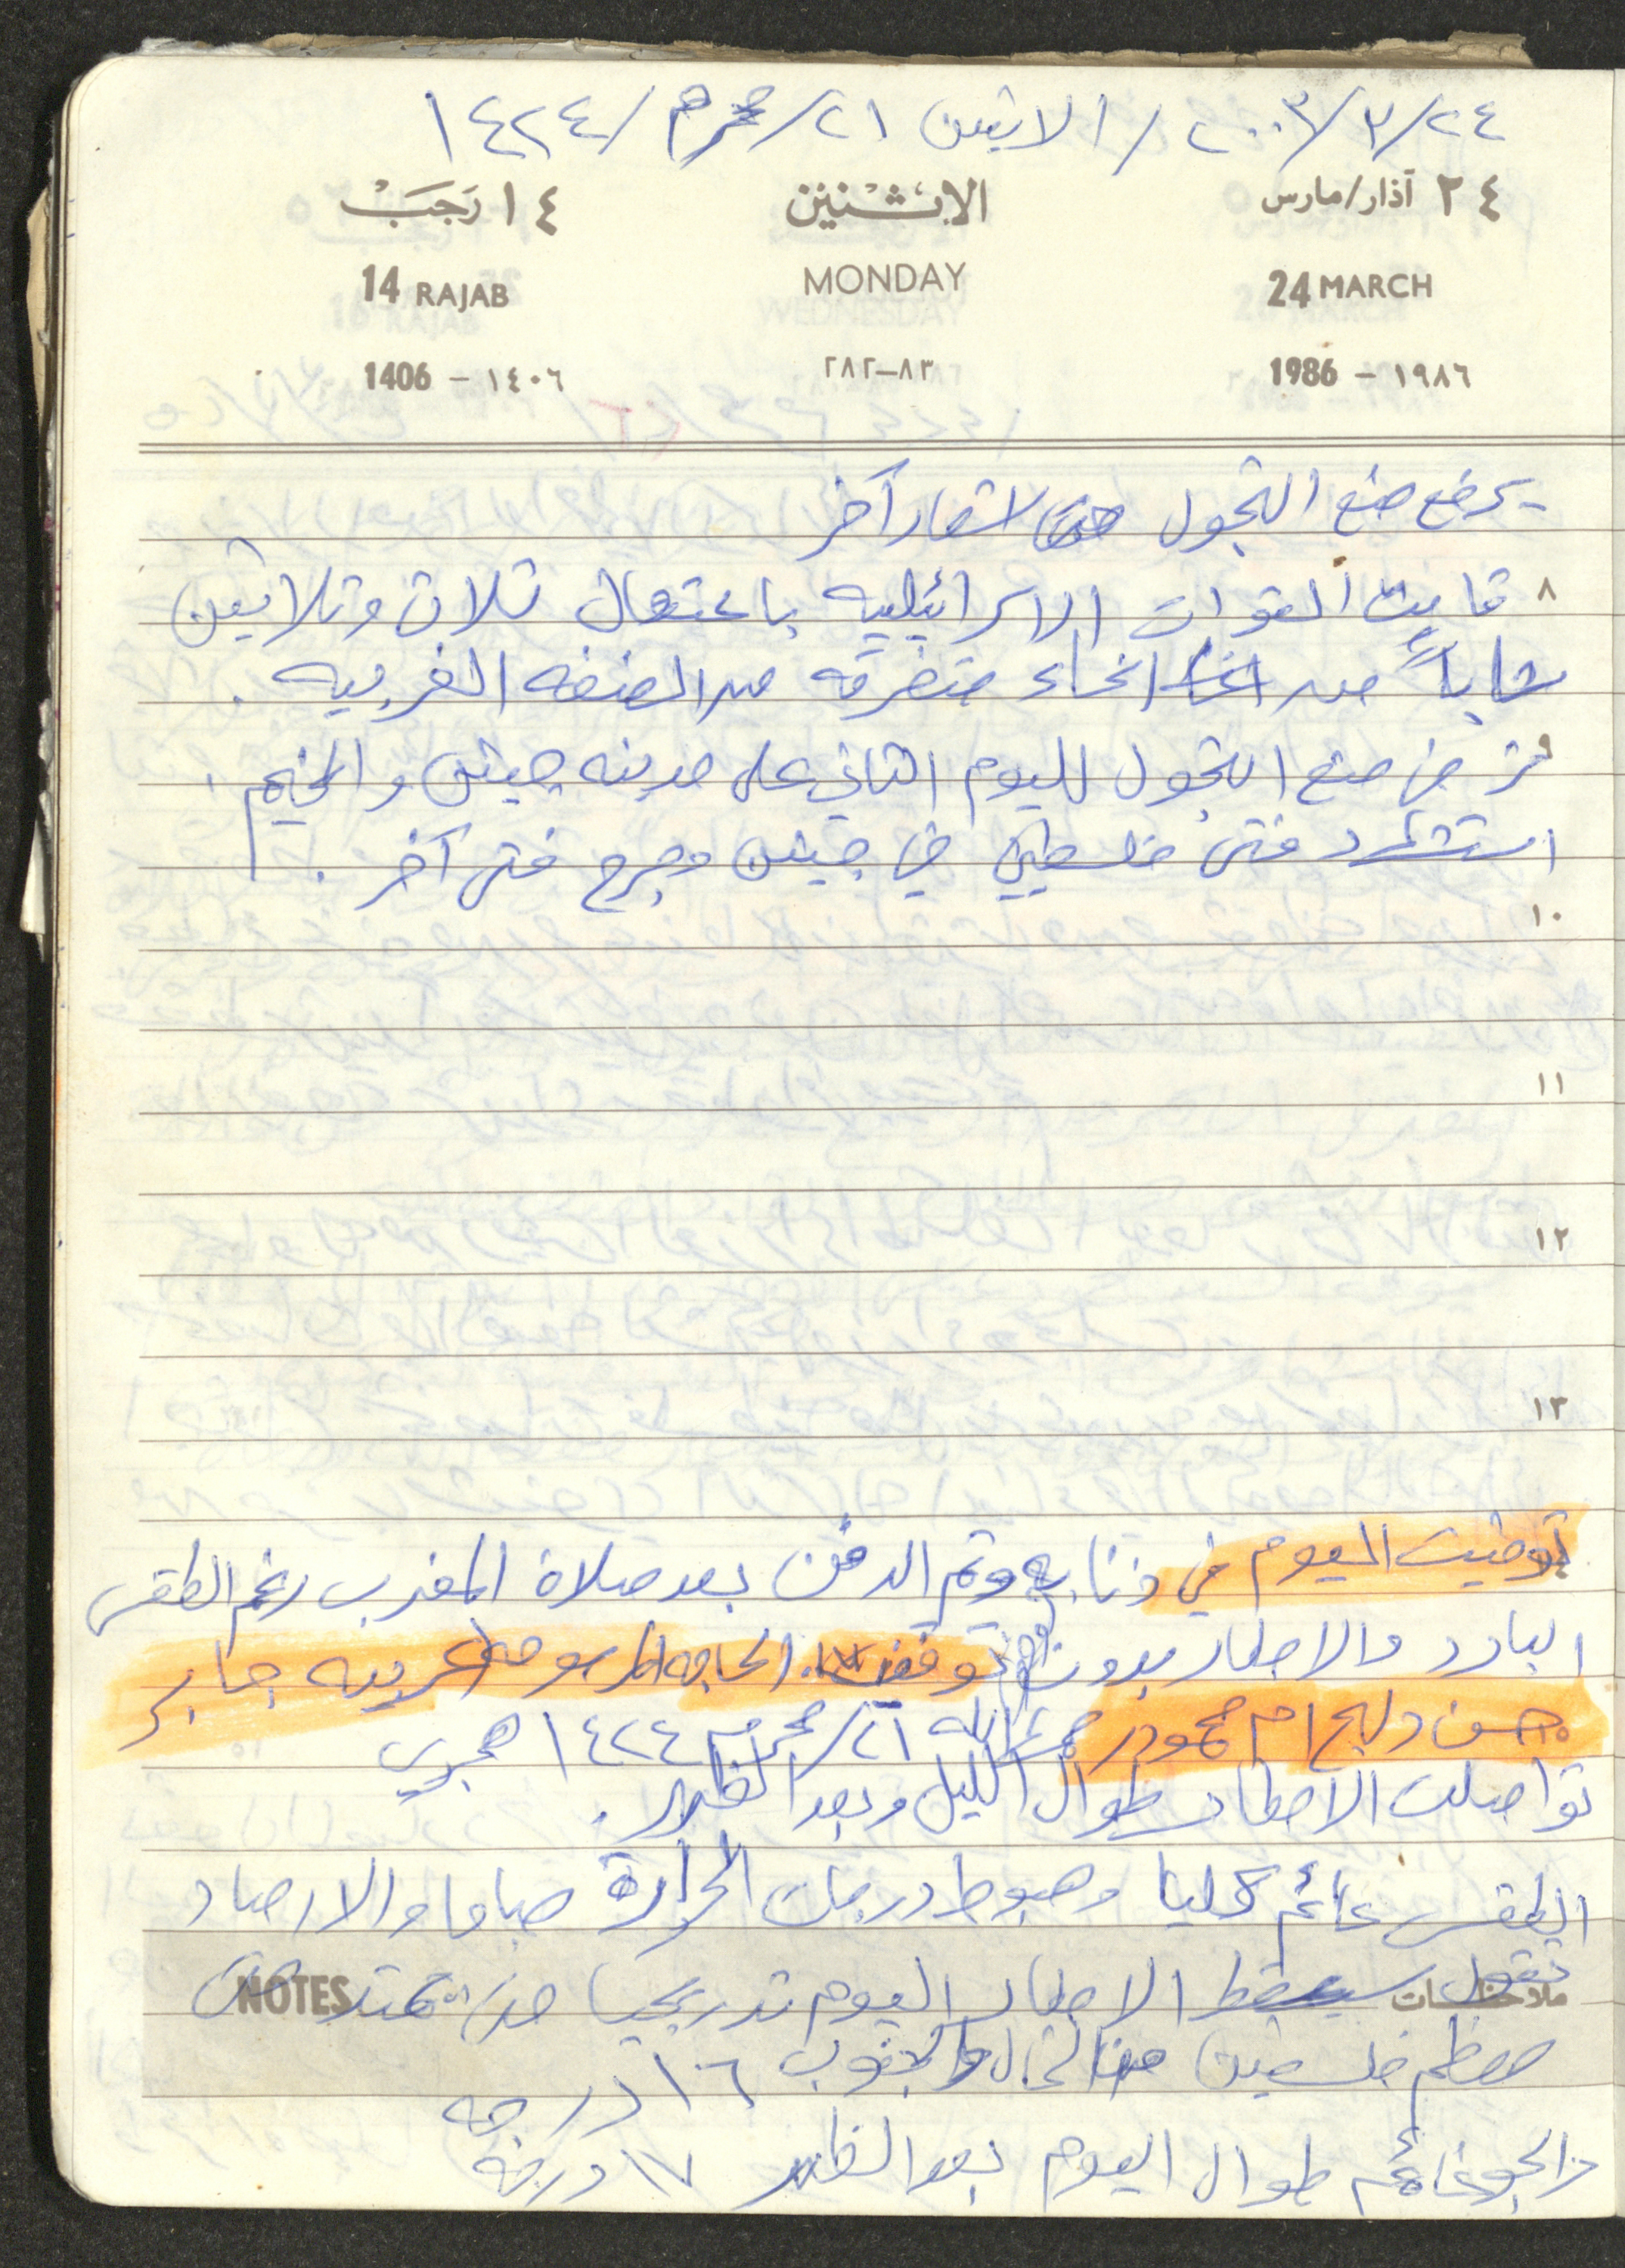 ٢٤/٣/٢٠٠٣ / الاثنين ٢١/محرم/١٤٢٤
٢٤ آذار/مارس الاثنين ١٤ رجب
24 MARCH MONDAY 14 RAJAB
1986 - ١٩٨٦ ٨٣-٢٨٢ 1406 - ١٤٠٦
- يرفع منع التجول حتى اشعار آخر
٨ قامت القوات الاسرائيليه باعتقال ثلاث وثلاثين
شاباً من انحاء متفرقه من الضفه الغربيه .
٩ فرض منع التجول لليوم الثاني على مدينه جنين والمخيم .
استشهد فتى فلسطيني في جنين وجرح فتى آخر .
١٠
١١
١٢
١٣
توفيت اليوم في ذنابه وتم الدفن بعد صلاة المغرب رغم الطقس
البارد والامطار بدون توقف الحاجه المرحومه عربيه جابر
حسن دلبح ام محمود رحمها الله ٢١/محرم ١٤٢٤ هجري
تواصلت الامطار طوال الليل وبعد الظهر .
الطقس غائم كليا وهبوط درجات الحرارة صباحا والارصاد
تقول سيسقط الامطار اليوم تدريجيا حتى تمتد
ملاحظات NOTES
معظم فلسطين من الشمال والجنوب ١٦ درجه
والجو غائم طوال اليوم بعد الظهر ١٧ درجه